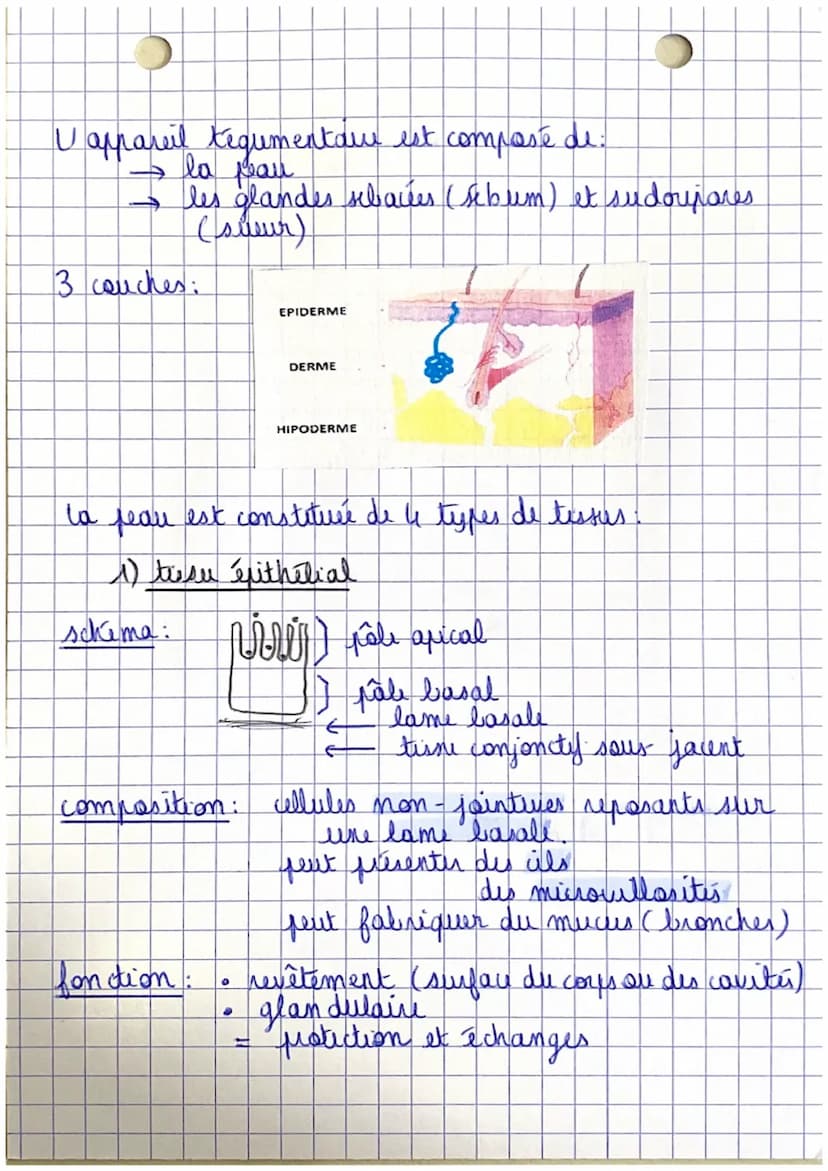 L'appareil tégumentaire est composé de:
→ la peau
→ les glandes sébacées (sébum) et sudoripares
(sueur)
3 couches:
EPIDERME
DERME
HIPODERME
la peau est constituée de 4 types de tissus:
1) tissu épithélial
schéma:
pôle apical
pôle basal
← lame basale
← tissu conjonctif sous jacent
composition: cellules non-jointives reposants sur
une lame basale.
peut présenter des cils
des microvillosités
peut fabriquer du mucus (bronches)
fonction: • revêtement (surface du corps ou des cavités)
• glandulaire
= protection et échanges